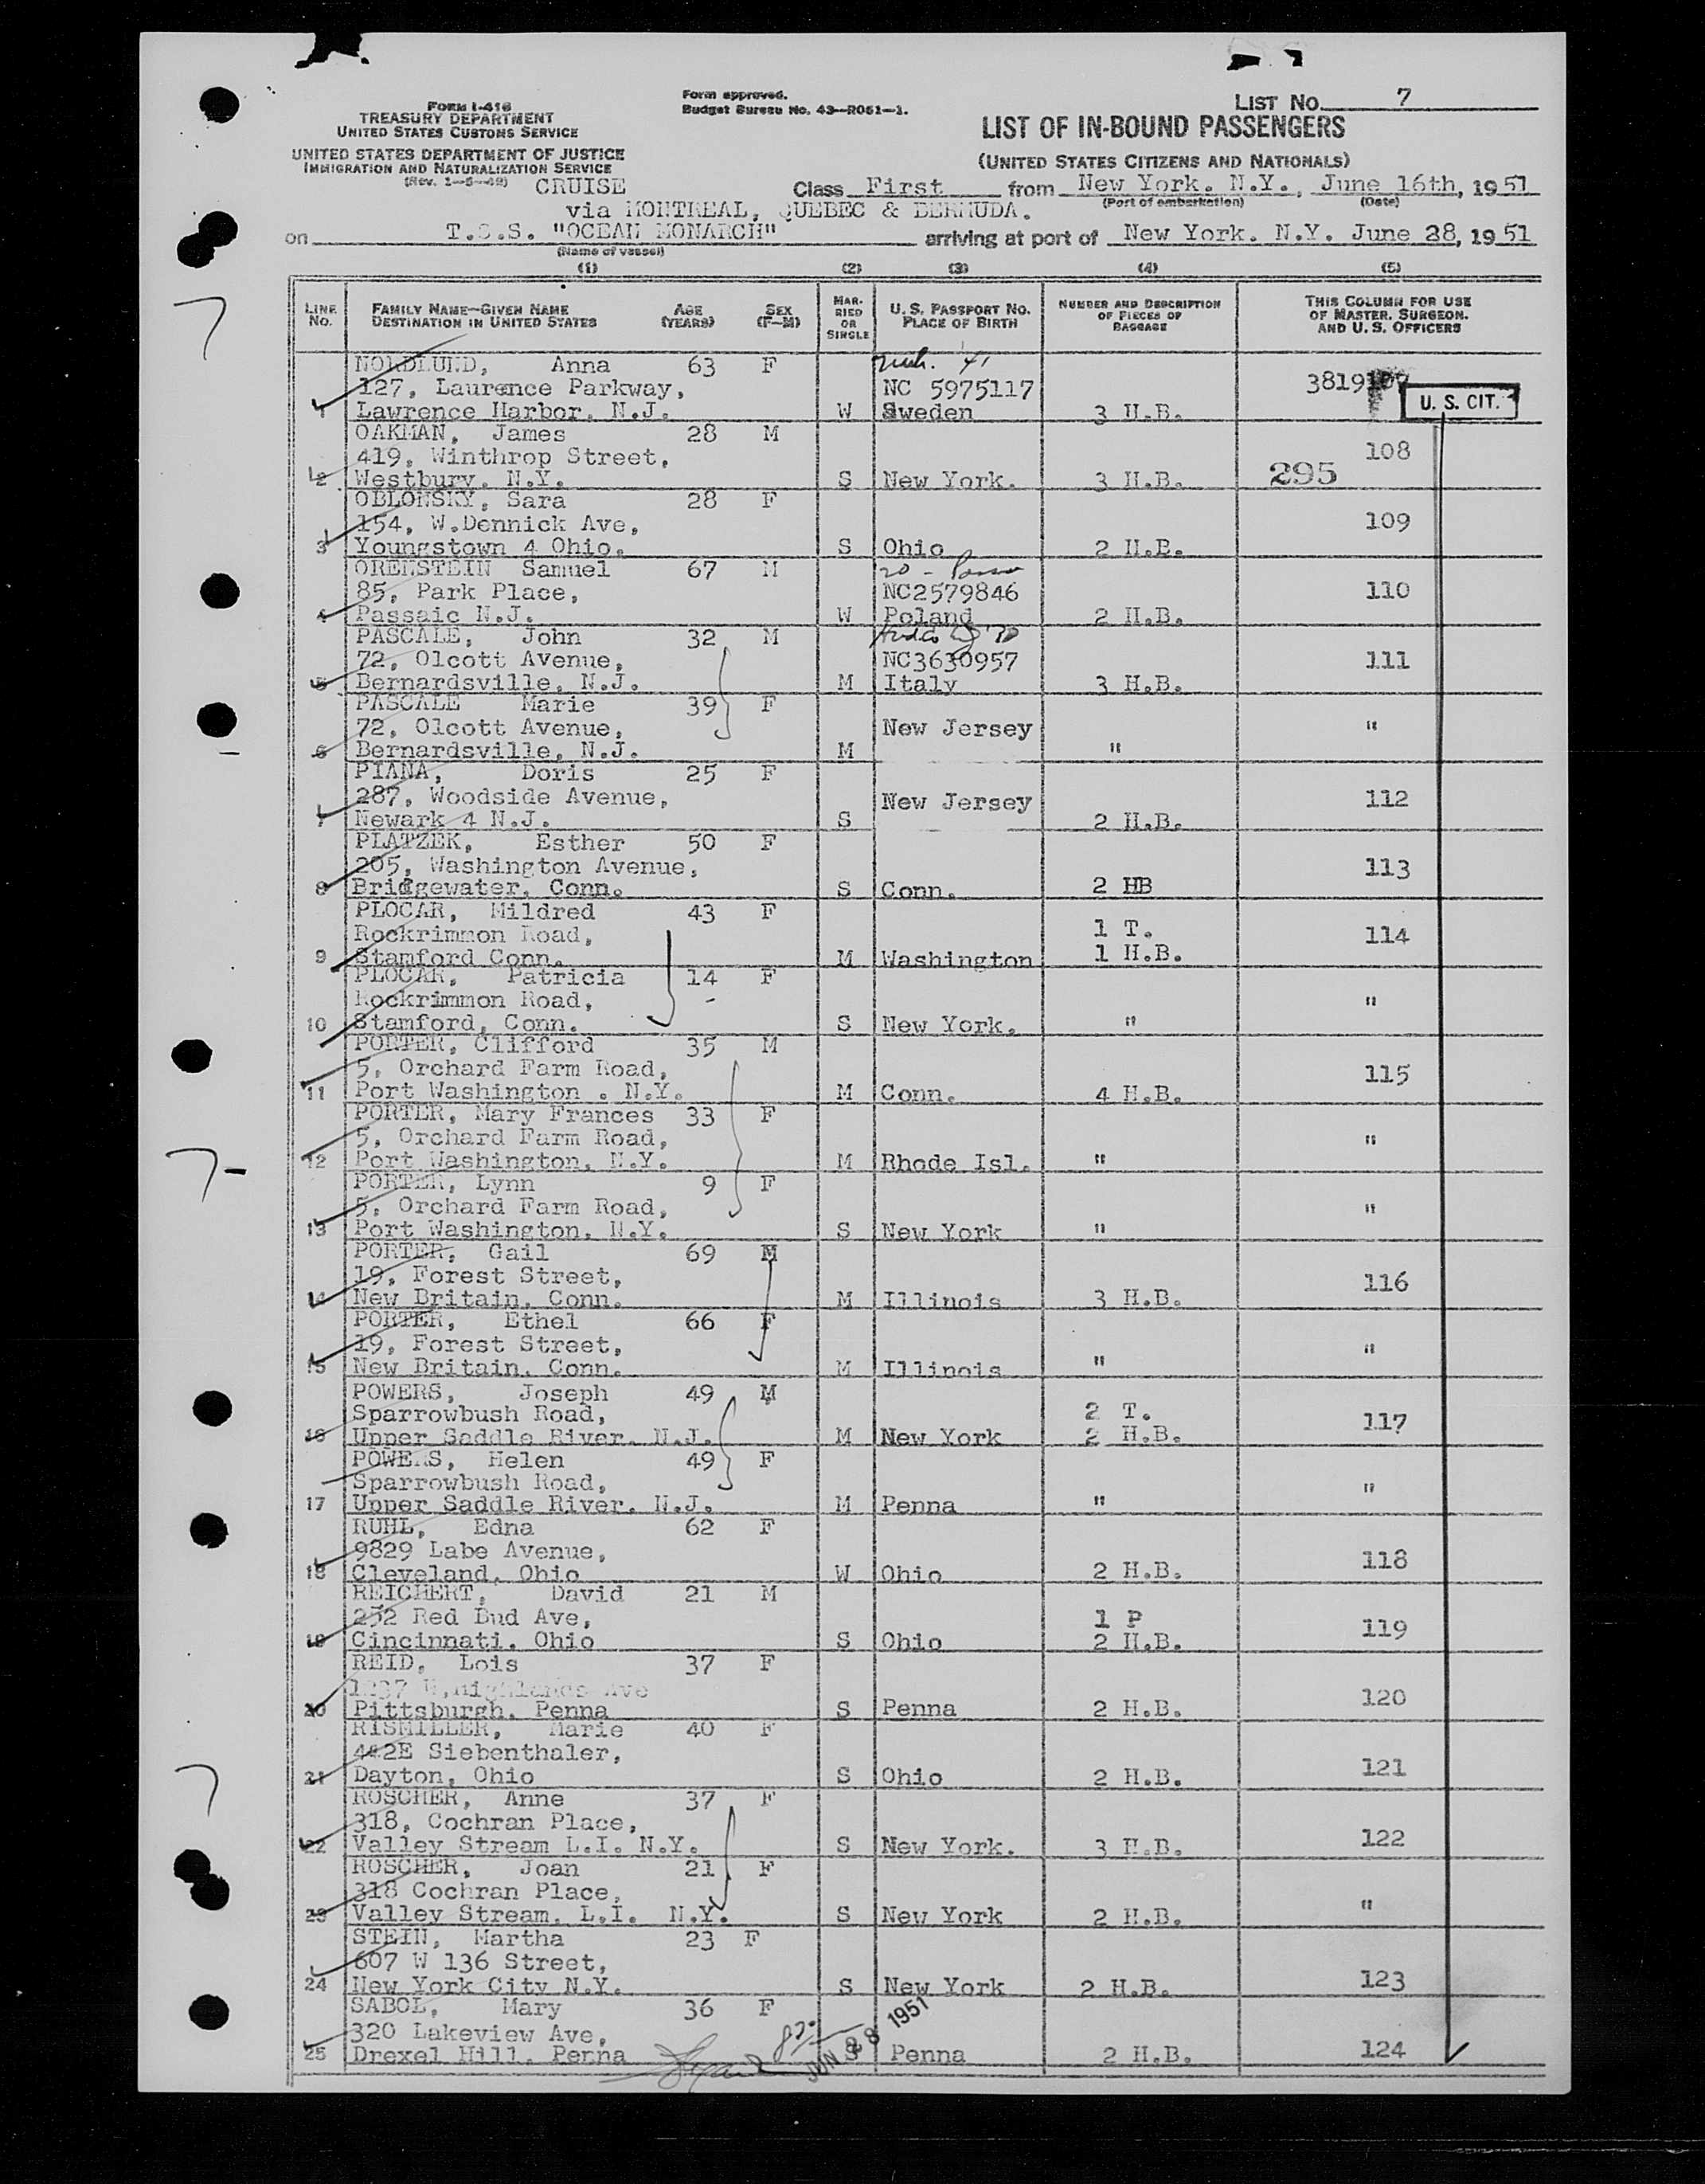 FORM I-416
TREASURY DEPARTMENT
UNITED STATES CUSTOMS SERVICE
UNITED STATES DEPARTMENT OF JUSTICE
IMMIGRATION AND NATURALIZATION SERVICE
(Rev. 1-5-49)
Form approved.
Budget Bureau No. 43-R051-1.
LIST NO. 7
LIST OF IN-BOUND PASSENGERS
(UNITED STATES CITIZENS AND NATIONALS)
CRUISE Class First from New York. N.Y., June 16th, 1951
(Port of embarkation) (Date)
via MONTREAL, QUEBEC & BERMUDA.
on T.S.S. "OCEAN MONARCH" arriving at port of New York. N.Y. June 28, 1951
(Name of vessel)
(1) (2) (3) (4) (5)
LINE No. FAMILY NAME-GIVEN NAME DESTINATION IN UNITED STATES AGE (YEARS) SEX (F-M) MARRIED OR SINGLE U. S. PASSPORT NO. PLACE OF BIRTH NUMBER AND DESCRIPTION OF PIECES OF BAGGAGE THIS COLUMN FOR USE OF MASTER, SURGEON, AND U. S. OFFICERS
NORDLUND, Anna 63 F
127, Laurence Parkway, NC 5975117 3819107
1 Lawrence Harbor, N.J. W Sweden 3 H.B. U. S. CIT.
OAKMAN, James 28 M
419, Winthrop Street, 108
2 Westbury. N.Y. S New York. 3 H.B. 295
OBLONSKY, Sara 28 F
154, W.Dennick Ave, 109
3 Youngstown 4 Ohio. S Ohio 2 H.B.
ORENSTEIN Samuel 67 M 20 -
85, Park Place, NC2579846 110
4 Passaic N.J. W Poland 2 H.B.
PASCALE, John 32 M
72, Olcott Avenue, NC3630957 111
5 Bernardsville, N.J. M Italy 3 H.B.
PASCALE Marie 39 F
72, Olcott Avenue, New Jersey "
6 Bernardsville, N.J. M "
PIANA, Doris 25 F
287, Woodside Avenue, New Jersey 112
7 Newark 4 N.J. S 2 H.B.
PLATZEK, Esther 50 F
205, Washington Avenue, 113
8 Bridgewater, Conn. S Conn. 2 HB
PLOCAR, Mildred 43 F
Rockrimmon Road, 1 T. 114
9 Stamford Conn. M Washington 1 H.B.
PLOCAR, Patricia 14 F
Rockrimmon Road, "
10 Stamford, Conn. S New York. "
PORTER, Clifford 35 M
5, Orchard Farm Road, 115
11 Port Washington . N.Y. M Conn. 4 H.B.
PORTER, Mary Frances 33 F
5, Orchard Farm Road, "
12 Port Washington, N.Y. M Rhode Isl. "
PORTER, Lynn 9 F
5, Orchard Farm Road, "
13 Port Washington, N.Y. S New York "
PORTER, Gail 69 M
19, Forest Street, 116
14 New Britain, Conn. M Illinois 3 H.B.
PORTER, Ethel 66 F
19, Forest Street, "
15 New Britain, Conn. M Illinois "
POWERS, Joseph 49 M
Sparrowbush Road, 2 T. 117
16 Upper Saddle River. N.J. M New York 2 H.B.
POWERS, Helen 49 F
Sparrowbush Road, "
17 Upper Saddle River. N.J. M Penna "
RUHL, Edna 62 F
9829 Labe Avenue, 118
18 Cleveland, Ohio W Ohio 2 H.B.
REICHERT, David 21 M
252 Red Bud Ave, 1 P 119
19 Cincinnati. Ohio S Ohio 2 H.B.
REID, Lois 37 F
Ave 120
20 Pittsburgh. Penna S Penna 2 H.B.
RISMILLER, Marie 40 F
442E Siebenthaler, 121
21 Dayton, Ohio S Ohio 2 H.B.
ROSCHER, Anne 37 F
318, Cochran Place, 122
22 Valley Stream L.I. N.Y. S New York. 3 H.B.
ROSCHER, Joan 21 F
318 Cochran Place, "
23 Valley Stream. L.I. N.Y. S New York 2 H.B.
STEIN, Martha 23 F
607 W 136 Street, 123
24 New York City N.Y. S New York 2 H.B.
SABOL, Mary 36 F
320 Lakeview Ave, JUN 28 1951
25 Drexel Hill. Penna Penna 2 H.B. 124